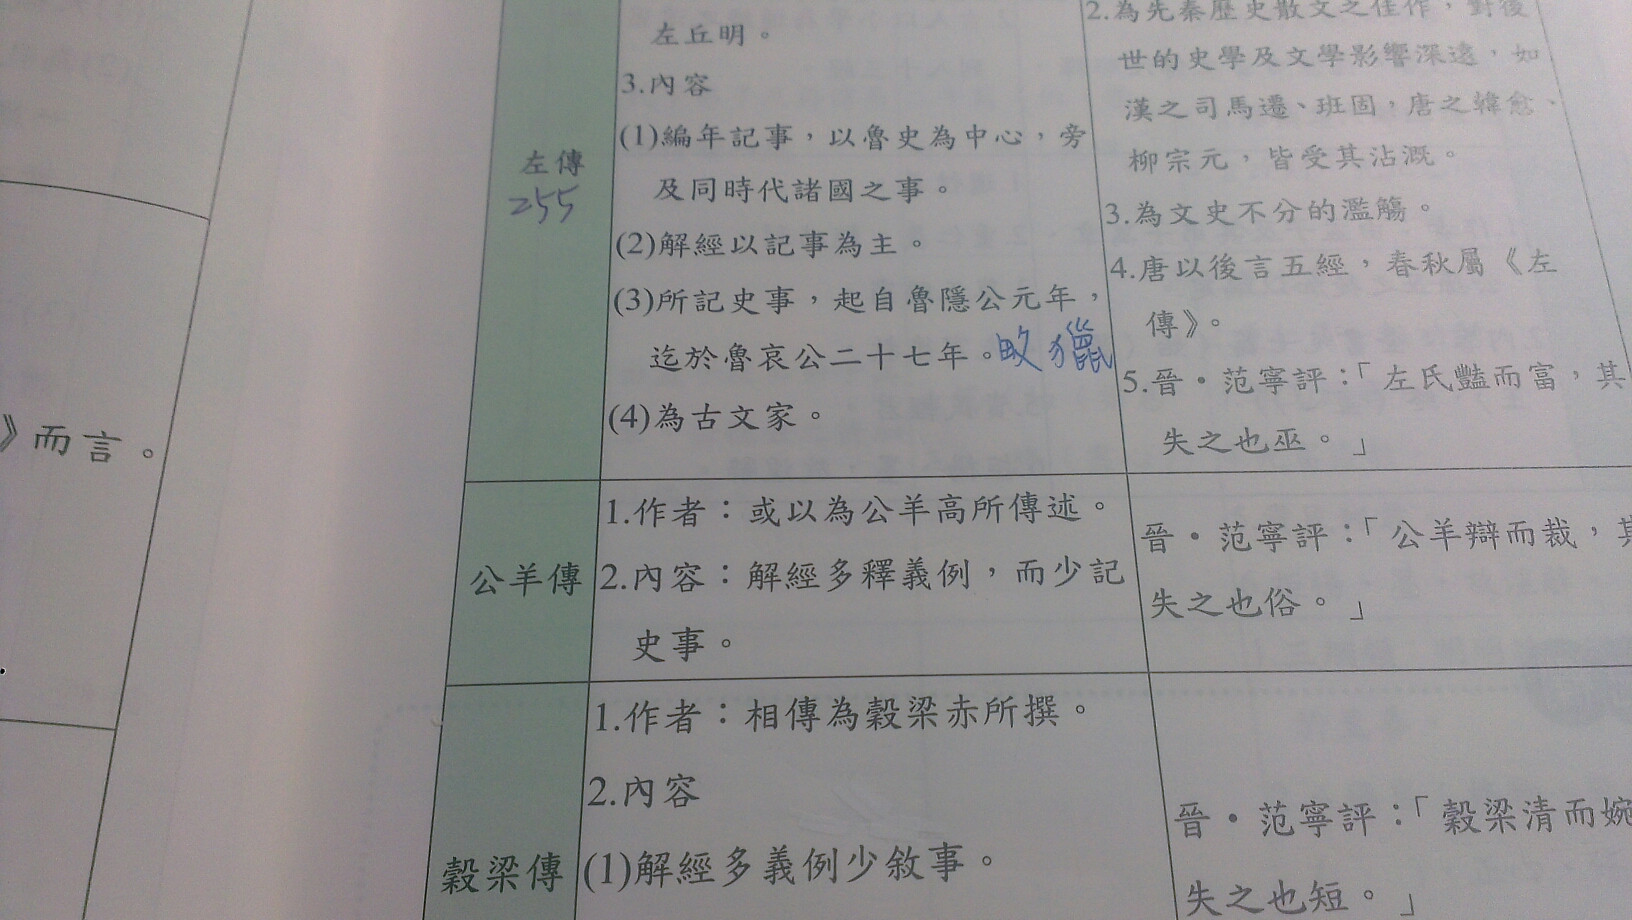 》而言。
左丘明。
3.內容
(1)編年記事，以魯史為中心，旁
及同時代諸國之事。
(2)解經以記事為主。
(3)所記史事，起自魯隱公元年，
迄於魯哀公二十七年。
(4)為古文家。
左傳
255
2.為先秦歷史散文之佳作，對後
世的史學及文學影響深遠，如
漢之司馬遷、班固，唐之韓愈、
柳宗元，皆受其沾溉。
3.為文史不分的濫觴。
4.唐以後言五經，春秋屬《左
傳》。
5.晉・范寧評：「左氏豔而富，其
失之也巫。」
公羊傳
1.作者：或以為公羊高所傳述。
2.內容：解經多釋義例，而少記
史事。
晉・范寧評：「公羊辯而裁，其
失之也俗。」
穀梁傳
1.作者：相傳為穀梁赤所撰。
2.內容
(1)解經多義例少敘事。
晉・范寧評：「穀梁清而婉
失之也短。」